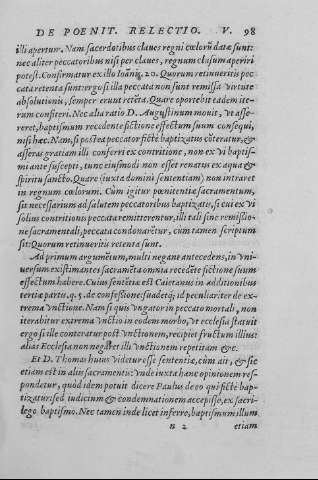 DE POENIT. RELECTIO. V. 98
illi apertum. Nam sacerdotibus claues regni cœlorũ datæ sunt:
nec aliter peccatoribus nisi per claues, regnum clasum aperiri
potest. Confirmatur ex illo Ioãnis. 20. Quorum retinueritis pec
cata retenta sunt: ergo si illa peccata non sunt remissa virtute
absolutionis, semper erunt retẽta. Quare oportebit eadem ite-
rum confiteri. Nec alia ratio D. Augustinum mouit, vt asse-
reret, baptismum recedente fictione effectum suum consequi,
nisi hæc. Nam si postea peccator fictè baptizatus côteratur, &
asseras gratiam illi conferri ex contritione, non ex vi baptis-
mi ante suscepti, tunc eiusmodi non esset renatus ex aqua &
spiritu sancto. Quare (iuxta domini sententiam) non intraret
in regnum cœlorum. Cùm igitur pœnitentiæ sacramentum,
sit necessarium ad salutem peccatoribus baptizatis, si cui ex vi
solius contritionis peccata remitterentur, illi tali sine remissio
ne sacramentali, peccata condonarẽtur, cum tamen scriptum
sit: Quorum retinueritis retenta sunt.
Ad primum argumẽtum, multi negant antecedens, in vni-
uersum existimantes sacramẽta omnia recedẽte fictione suum
effectum habere. Cuius sentẽtiæ est Caietanus in additionibus
tertiæ partis. q. 5. de confessione: suadetq; id peculiariter de ex-
trema vnctione. Nam si quis vngator in peccato mortali, non
iterabitur extrema vnctio in eodem morbo, vt ecclesia statuit
ergo si ille conteratur post vnctionem, recipiet fructum illius:
alias Ecclesia non negaret illi vnctionem repetitam &c.
Et D. Thomas huius videtur esse sententiæ, cùm ait, & sic
etiam est in aliis sacramentis: vnde iuxta hanc opinionem res-
pondetur, quòd idem potuit dicere Paulus de eo qui fictè bap-
tizatur: sed iudicium & condemnationem accepisse, ex sacri-
lego baptismo. Nec tamen inde licet inferre, baptismum illum
n 2 etiam